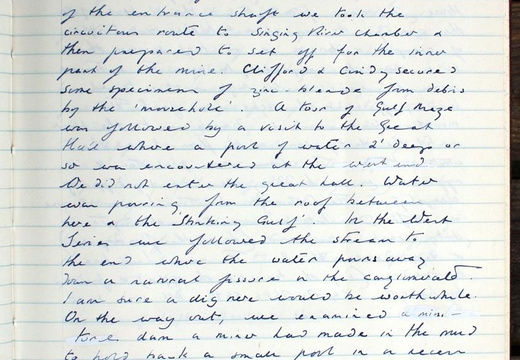 of the entrance shaft we took the
circuitous route to Singing River Chamber &
then prepared to set off for the inner
part of the mine. Clifford & Cindy secured
some specimens of zinc-blende from debris
by the 'mousehole'. A tour of Gulf Maze
was followed by a visit to the Great
Hall where a pool of water 2' deep or
so was encountered at the west end
We did not enter the great hall. Water
was pouring from the roof between
here & the 'Stinking Gulf'. In the West
Series we followed the stream to
the end where the water pours away
down a natural fissure in the conglomerate.
I am sure a dig here would be worthwhile.
On the way out, we examined a mini-
dam a miner had made in the mud
to hold back a small pool in a